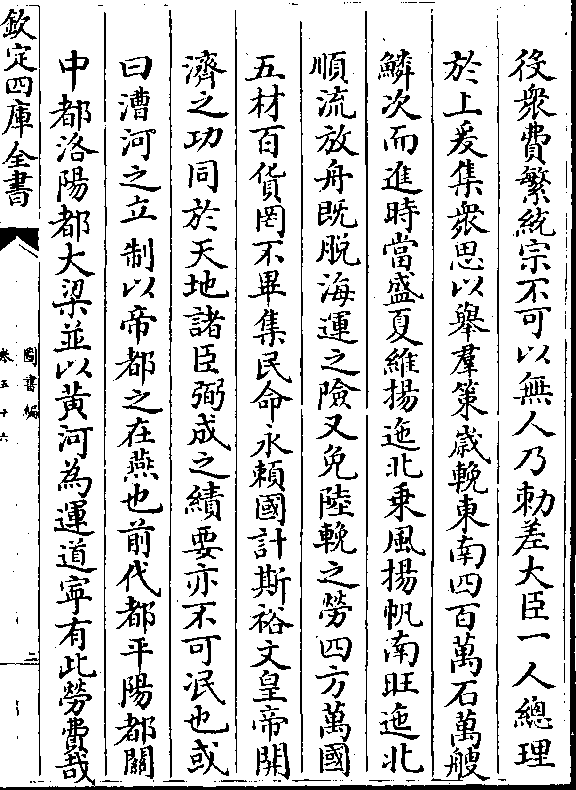 役衆費繁統宗不可以無人乃勅差大臣一人總理
於上爰集衆思以舉羣策歲輓東南四百萬石萬艘
鱗次而進時當盛夏維揚迤北乗風揚帆南旺迤北
順流放舟既脱海運之險又免陸輓之勞四方萬國
五材百貨罔不畢集民命永賴國計斯裕文皇帝開
濟之功同於天地諸臣弼成之績要亦不可泯也或
曰漕河之立制以帝都之在燕也前代都平陽都關
中都洛陽都大梁並以黄河為運道寧有此勞費哉
欽定四庫全書
圖書編
卷五十六